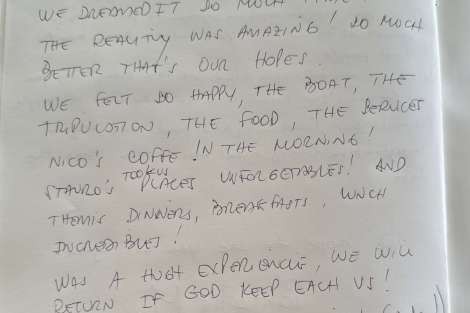 WE DREAMED IT SO MUCH
THE REALITY WAS AMAZING! SO MUCH
BETTER THAT'S OUR HOPES.
WE FELT SO HAPPY, THE BOAT, THE
TRIPULOTION, THE FOOD, THE SERVICES
NICO'S COFFE IN THE MORNING!
STAVRO'S TOOK US PLACES UNFORGETABLES! AND
THEMIS DINNERS, BREAKFASTS, LUNCH
INCREDIBLES!
WAS A HUGH EXPERIENCIE, WE WILL
RETURN IF GOD KEEP EACH US!